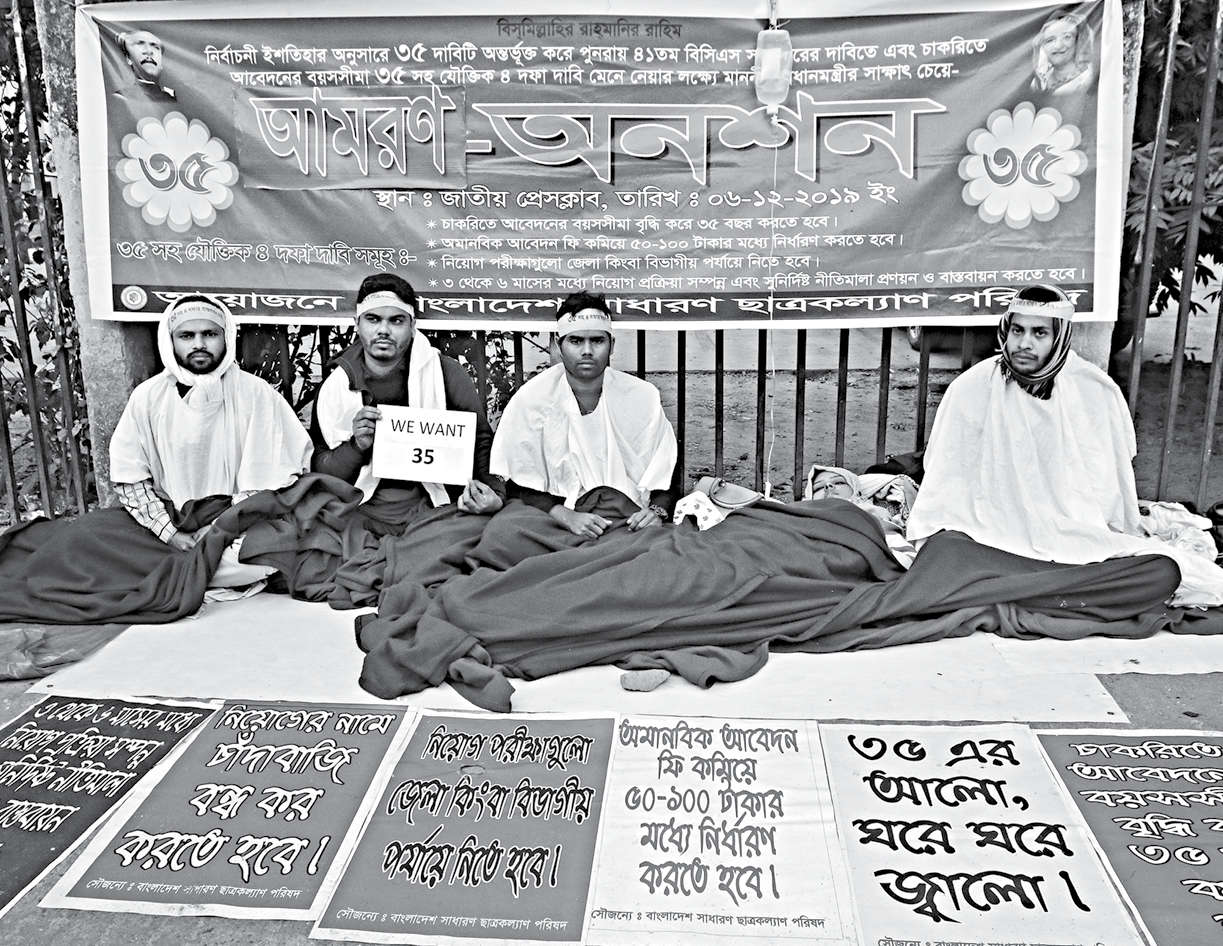 বিস্‌মিল্লাহির রাহমানির রাহিম
নির্বাচনী ইশতিহার অনুসারে ৩৫ দাবিটি অন্তর্ভূক্ত করে পুনরায় ৪১তম বিসিএস রের দাবিতে এবং চাকরিতে
আবেদনের বয়সসীমা ৩৫ সহ যৌক্তিক ৪ দফা দাবি মেনে নেয়ার লক্ষ্যে মানন ধানমন্ত্রীর সাক্ষাৎ চেয়ে-
আমরণ-অনশন
৩৫
৩৫
স্থান ঃ জাতীয় প্রেসক্লাব, তারিখ ঃ ০৬-১২-২০১৯ ইং
৩৫ সহ যৌক্তিক ৪ দফা দাবি সমূহ ঃ-
* চাকরিতে আবেদনের বয়সসীমা বৃদ্ধি করে ৩৫ বছর করতে হবে।
* অমানবিক আবেদন ফি কমিয়ে ৫০-১০০ টাকার মধ্যে নির্ধারণ করতে হবে।
* নিয়োগ পরীক্ষাগুলো জেলা কিংবা বিভাগীয় পর্যায়ে নিতে হবে।
* ৩ থেকে ৬ মাসের মধ্যে নিয়োগ প্রক্রিয়া সম্পন্ন এবং সুনির্দিষ্ট নীতিমালা প্রণয়ন ও বাস্তবায়ন করতে হবে।
আয়োজনে বাংলাদেশ সাধারণ ছাত্রকল্যাণ পরিষদ
WE WANT
35
৩ থেকে ৬ মাসের মধ্যে
নিয়োগ প্রক্রিয়া সম্পন্ন
নির্দিষ্ট নীতিমালা
বাস্তবায়ন
নিয়োগের নামে
চাঁদাবাজি
বন্ধ কর
করতে হবে।
সৌজন্যে ঃ বাংলাদেশ সাধারণ ছাত্রকল্যাণ পরিষদ
নিয়োগ পরীক্ষাগুলো
জেলা কিংবা বিভাগীয়
পর্যায়ে নিতে হবে।
সৌজন্যে ঃ বাংলাদেশ সাধারণ ছাত্রকল্যাণ পরিষদ
অমানবিক আবেদন
ফি কমিয়ে
৫০-১০০ টাকার
মধ্যে নির্ধারণ
করতে হবে।
সৌজন্যে ঃ বাংলাদেশ সাধারণ ছাত্রকল্যাণ পরিষদ
৩৫ এর
আলো,
ঘরে ঘরে
জ্বালো।
সৌজন্যে ঃ বাংলাদেশ সাধারণ ছাত্রকল্যাণ পরিষদ
চাকরিতে
আবেদনে
বয়সসী
বৃদ্ধি ক
৩৫
ক